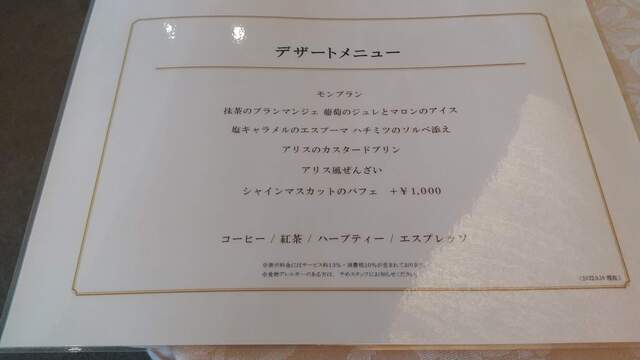 デザートメニュー
モンブラン
抹茶のブランマンジェ 葡萄のジュレとマロンのアイス
塩キャラメルのエスプーマ ハチミツのソルベ添え
アリスのカスタードプリン
アリス風ぜんざい
シャインマスカットのパフェ +￥1,000
コーヒー / 紅茶 / ハーブティー / エスプレッソ
※表示料金にはサービス料13%・消費税10%が含まれております。
※食物アレルギーのある方は、予めスタッフにお知らせください。